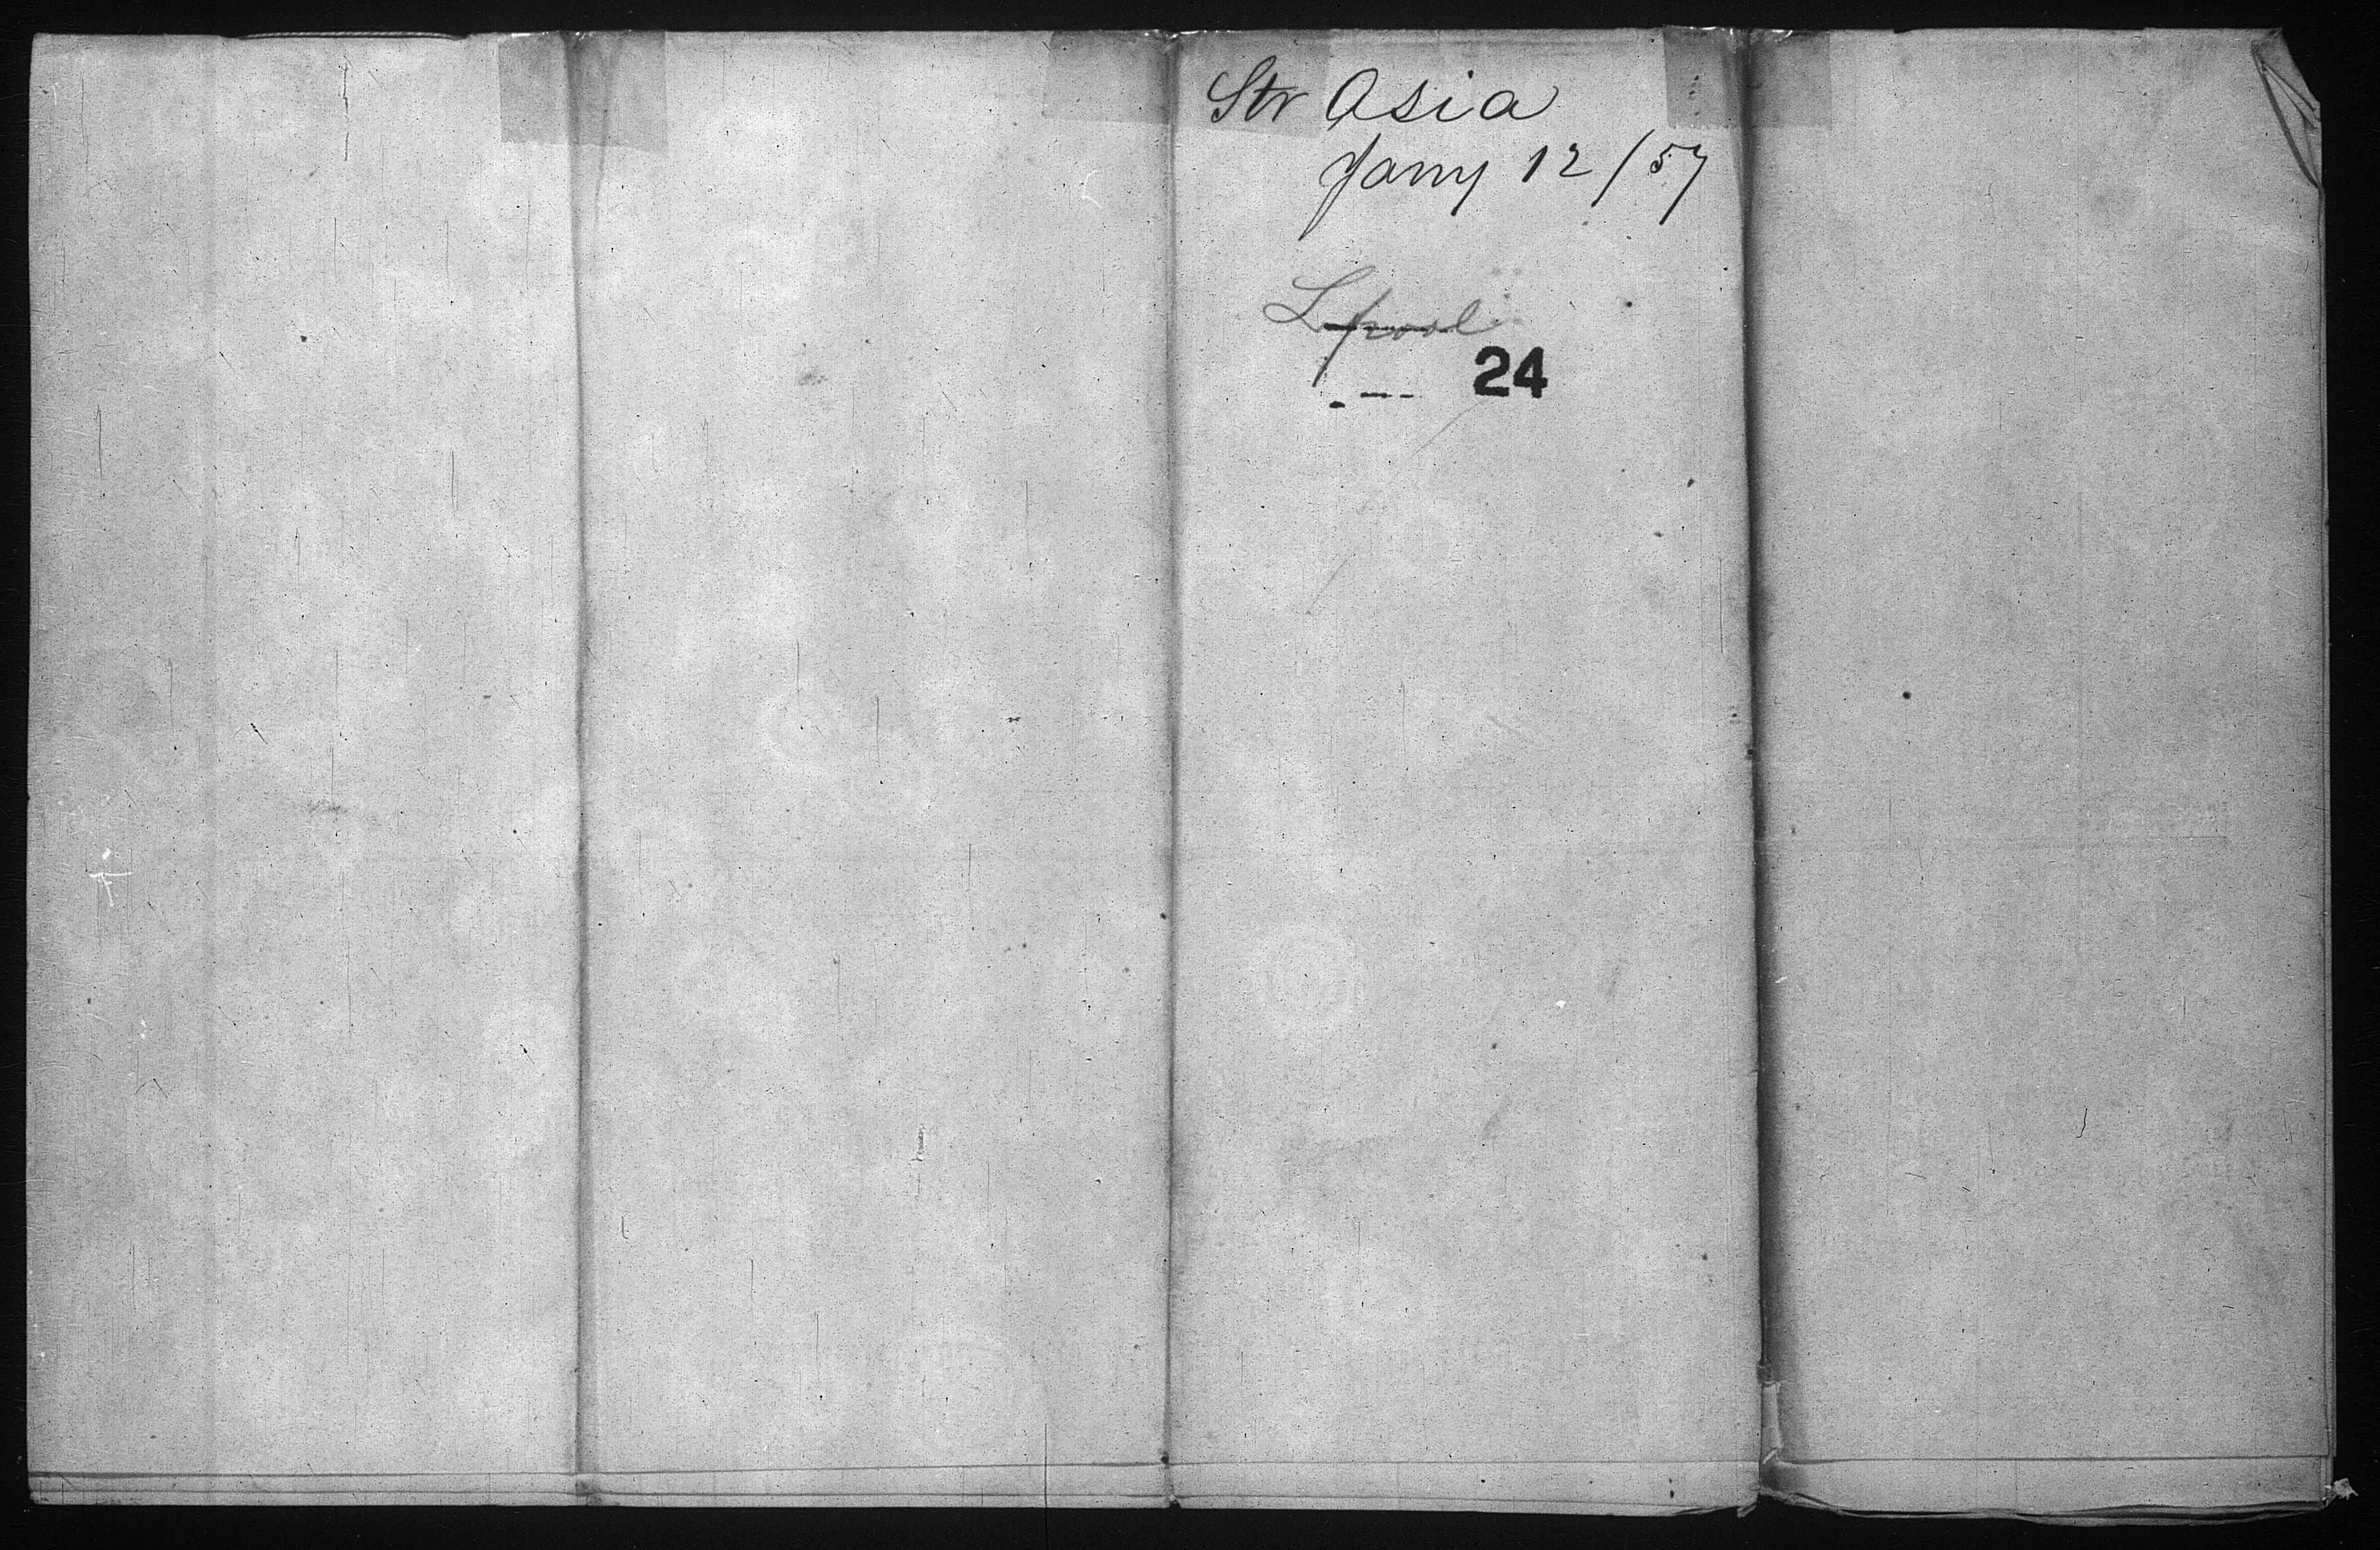 Str Asia
Jany 12/57
Lpool
24